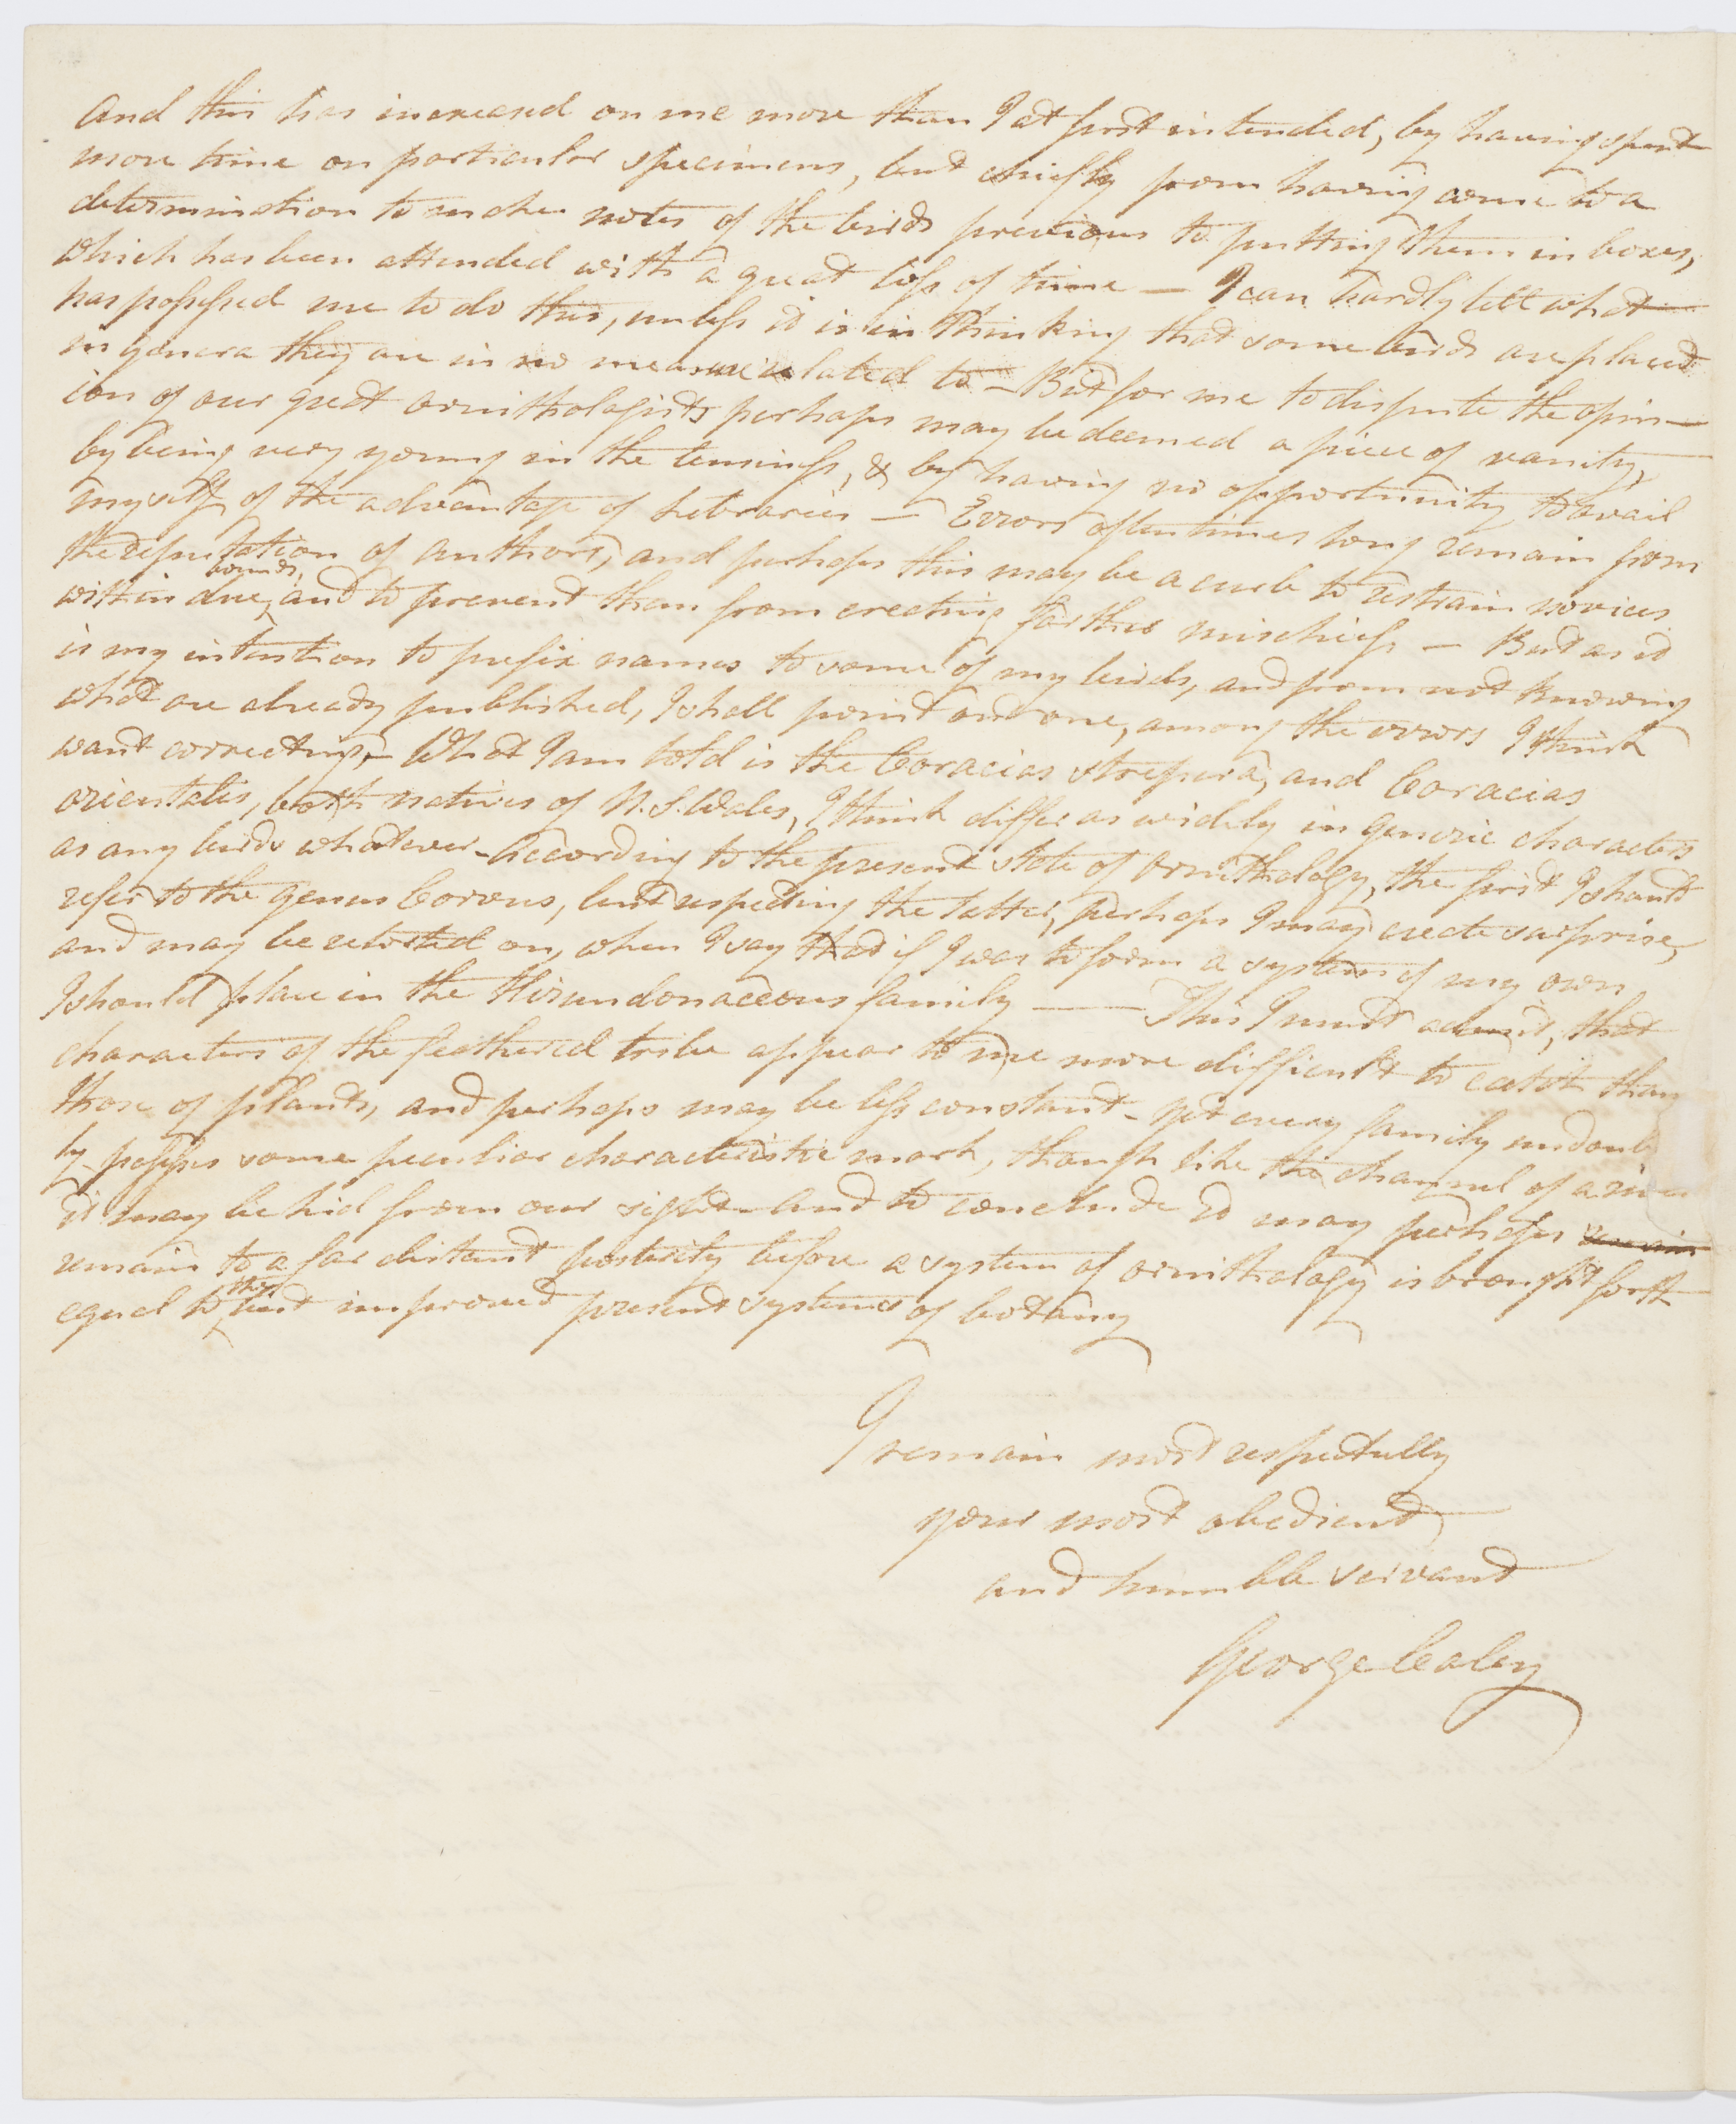 And this has increased on me more than I at first intended, by having spent
more time on particular specimens, but chiefly from having come to a
determination to make notes of the birds previous to putting them in boxes,
which has been attended with a great loss of time — I can hardly tell what
has possessed me to do this, unless it is in thinking that some birds are placed
in genera they are in no measure related to — But for me to dispute the opin-
ion of our great ornithologists perhaps may be deemed a piece of vanity,
by being very young in the business, & by having no opportunity to avail
myself of the advantage of libraries — Errors oftentimes long remain from
the reputation of authors, and perhaps this may be a curb to restrain novices
within due bounds, and to prevent them from creating farther mischief — But as it
is my intention to prefix names to some of my birds, and from not knowing
what are already published, I shall point out one, among the errors I think
want correcting, — What I am told is the Coracias strepera, and Coracias
orientalis, both natives of N. S. Wales, I think differ as widely in generic characters
as any birds whatever — According to the present state of ornithology, the first I should
refer to the genus Corvus, but respecting the latter, perhaps I may create surprise,
and may be retorted on, when I say that if I was to form a system of my own
I should place in the Hirundonaceous family —— This I must admit, that
characters of the feathered tribe appear to me more difficult to catch than
those of plants, and perhaps may be less constant — yet every family undoub
ly possesses some peculiar characteristic mark, though like the channel of a river
it may be hid from our sight — And to conclude it may perhaps remain
remain to a far distant posterity before a system of ornithology is brought forth
equal to the improved present systems of botany
I remain most respectfully
your most obedient
and humble servant
George Caley